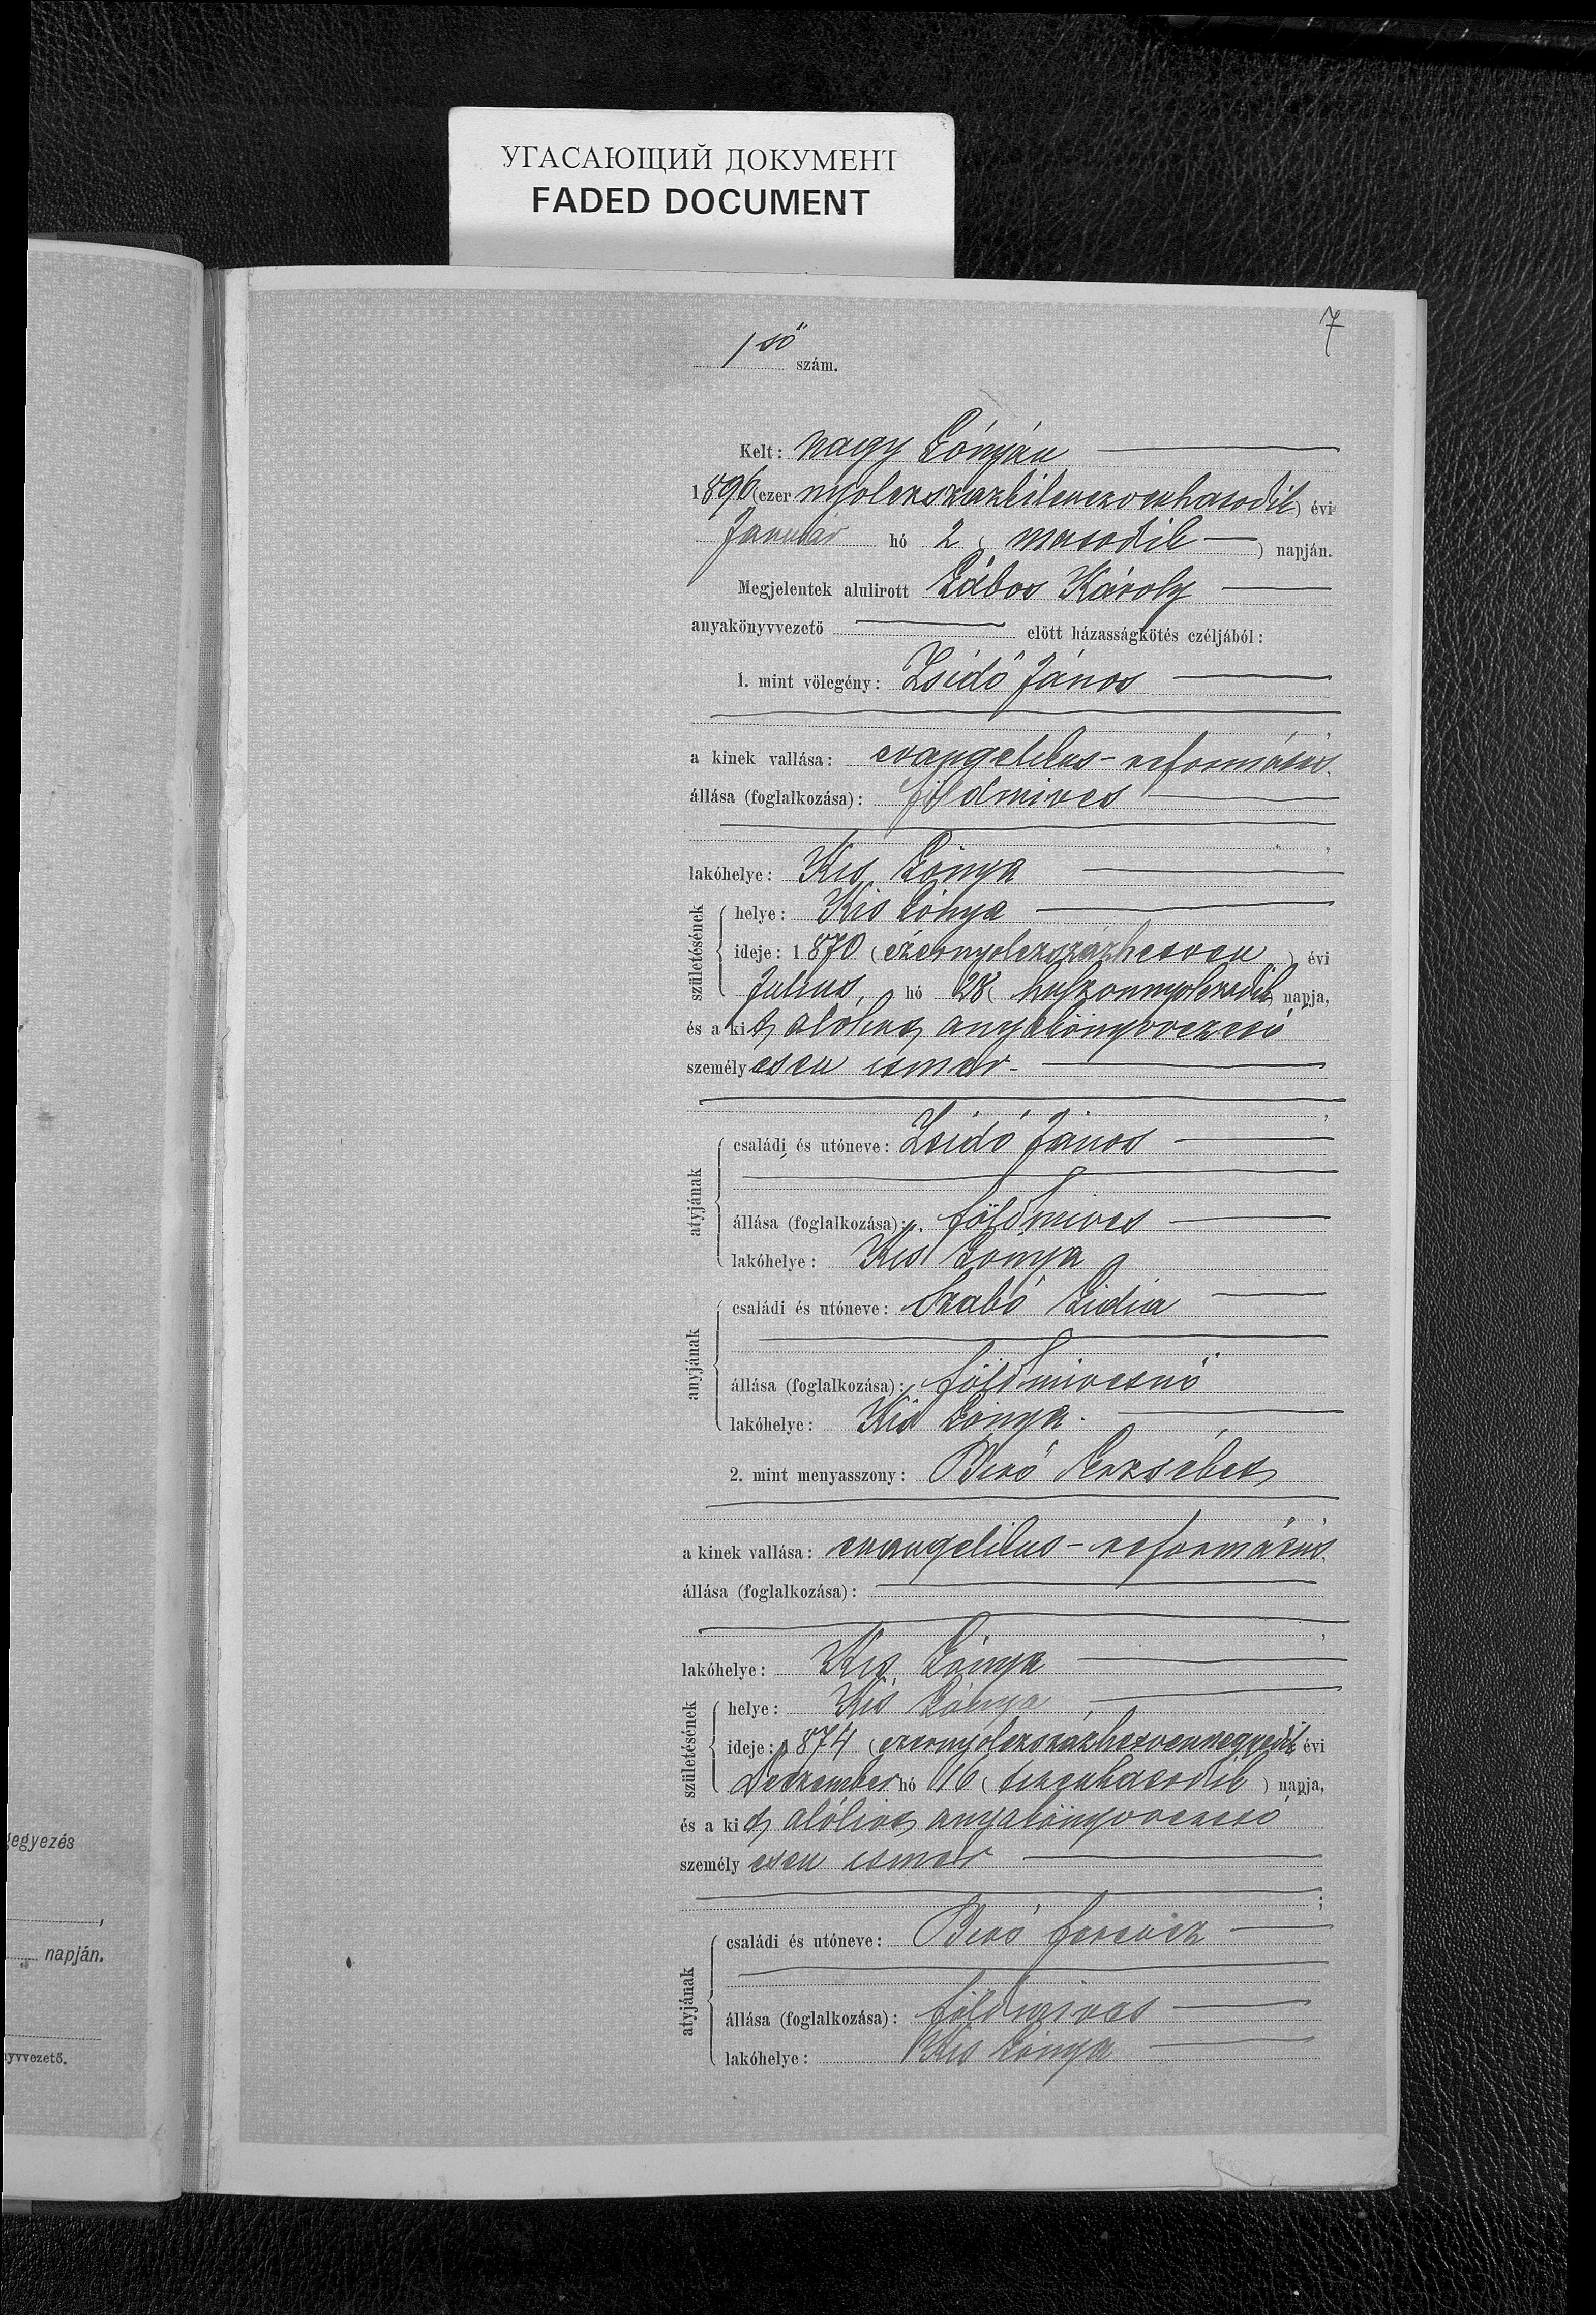 УГАСАЮЩИЙ ДОКУМЕНТ
FADED DOCUMENT
7
1ső szám.
Kelt: Nagy Lónyán
1896 (ezer nyolczszázkilenczvenhatodik) évi
Január hó 2 (második) napján.
Megjelentek alulirott Lábos Károly
anyakönyvvezető előtt házasságkötés czéljából:
1. mint völegény: Zsidó János
a kinek vallása: evangelikus-református,
állása (foglalkozása): földmives
lakóhelye: Kis Lónya
születésének
helye: Kis Lónya
ideje: 1870 (ezernyolczszázhetven) évi
Julius hó 28 (huszonnyolczadik) napja,
és a kit alólirt anyakönyvvezető
személyesen ismer.
atyjának
családi és utóneve: Zsidó János
állása (foglalkozása): földmives
lakóhelye: Kis Lónya
anyjának
családi és utóneve: Szabó Lidia
állása (foglalkozása): földmivesnő
lakóhelye: Kis Lónya.
2. mint menyasszony: Biró Erzsébet
a kinek vallása: evangelikus-református,
állása (foglalkozása):
lakóhelye: Kis Lónya
születésének
helye: Kis Lónya
ideje: 1874 (ezernyolczszázhetvennegyedik) évi
Deczember hó 16 (tizenhatodik) napja,
és a kit alólirt anyakönyvvezető
személyesen ismer
;
atyjának
családi és utóneve: Biró Ferencz
állása (foglalkozása): földmives
lakóhelye: Kis Lónya
gegyezés
napján.
yvvezető.